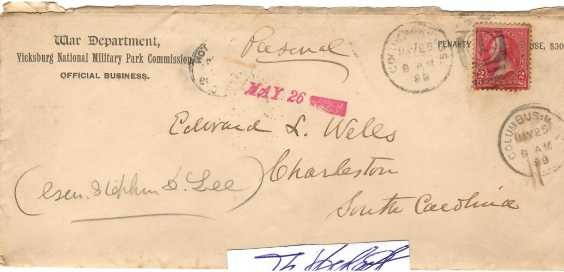 War Department,
Vicksburg National Military Park Commission,
OFFICIAL BUSINESS.
PENALTY USE, $30
COLUMBUS
MAY 25
8 AM
99
MAY. 26
COLUMBUS
MAY 25
8 AM
99
2 2
Edward L. Wells
Charleston
South Carolina
(Gen. Stephen D. Lee)